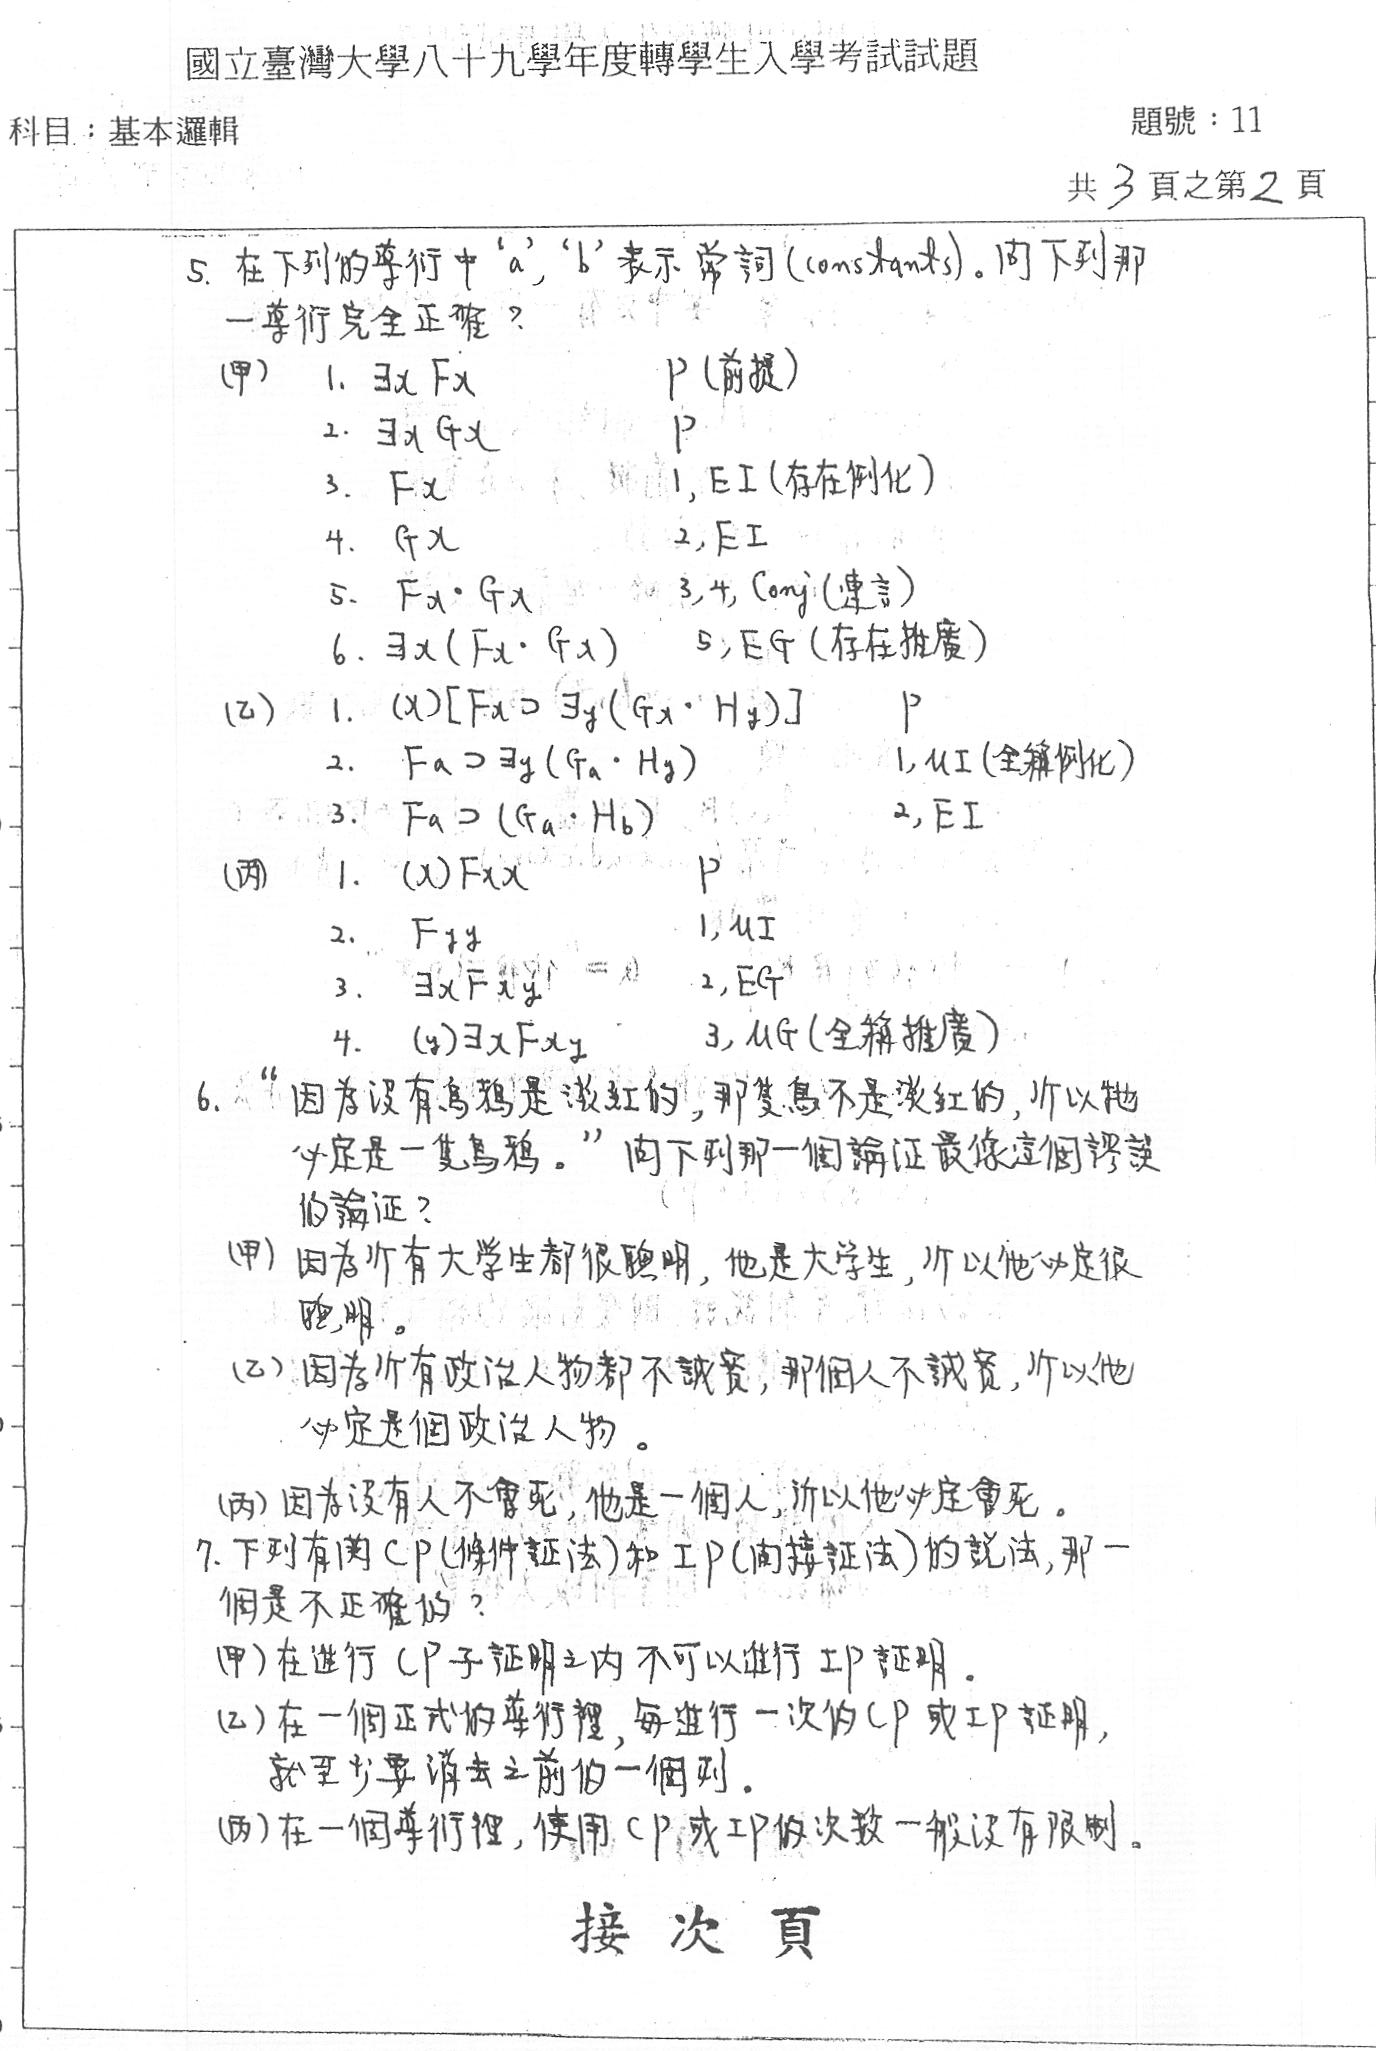 國立臺灣大學八十九學年度轉學生入學考試試題
科目：基本邏輯
題號：11
共3頁之第2頁
5. 在下列的導衍中‘a’, ‘b’表示常詞(constants)。問下列那
一導衍完全正確？
(甲) 1. ∃x Fx P(前提)
2. ∃x Gx P
3. Fx 1, EI(存在例化)
4. Gx 2, EI
5. Fx·Gx 3,4, Conj(連言)
6. ∃x(Fx·Gx) 5, EG(存在推廣)
(乙) 1. (x)[Fx⊃∃y(Gx·Hy)] P
2. Fa⊃∃y(Ga·Hy) 1, UI(全稱例化)
3. Fa⊃(Ga·Hb) 2, EI
(丙) 1. (x)Fxx P
2. Fyy 1, UI
3. ∃xFxy 2, EG
4. (y)∃xFxy 3, UG(全稱推廣)
6. “因為沒有烏鴉是淡紅的, 那隻鳥不是淡紅的, 所以牠
必定是一隻烏鴉。” 問下列那一個論証最像這個謬誤
的論証？
(甲) 因為所有大学生都很聰明, 他是大学生, 所以他必定很
聰明。
(乙) 因為所有政治人物都不誠實, 那個人不誠實, 所以他
必定是個政治人物。
(丙) 因為沒有人不會死, 他是一個人, 所以他必定會死。
7. 下列有関CP(條件証法)和IP(間接証法)的說法, 那一
個是不正確的？
(甲) 在進行CP子証明之内不可以進行IP証明。
(乙) 在一個正式的導衍裡, 每進行一次的CP或IP証明,
就至少要消去之前的一個列。
(丙) 在一個導衍裡, 使用CP或IP的次数一般沒有限制。
接次頁